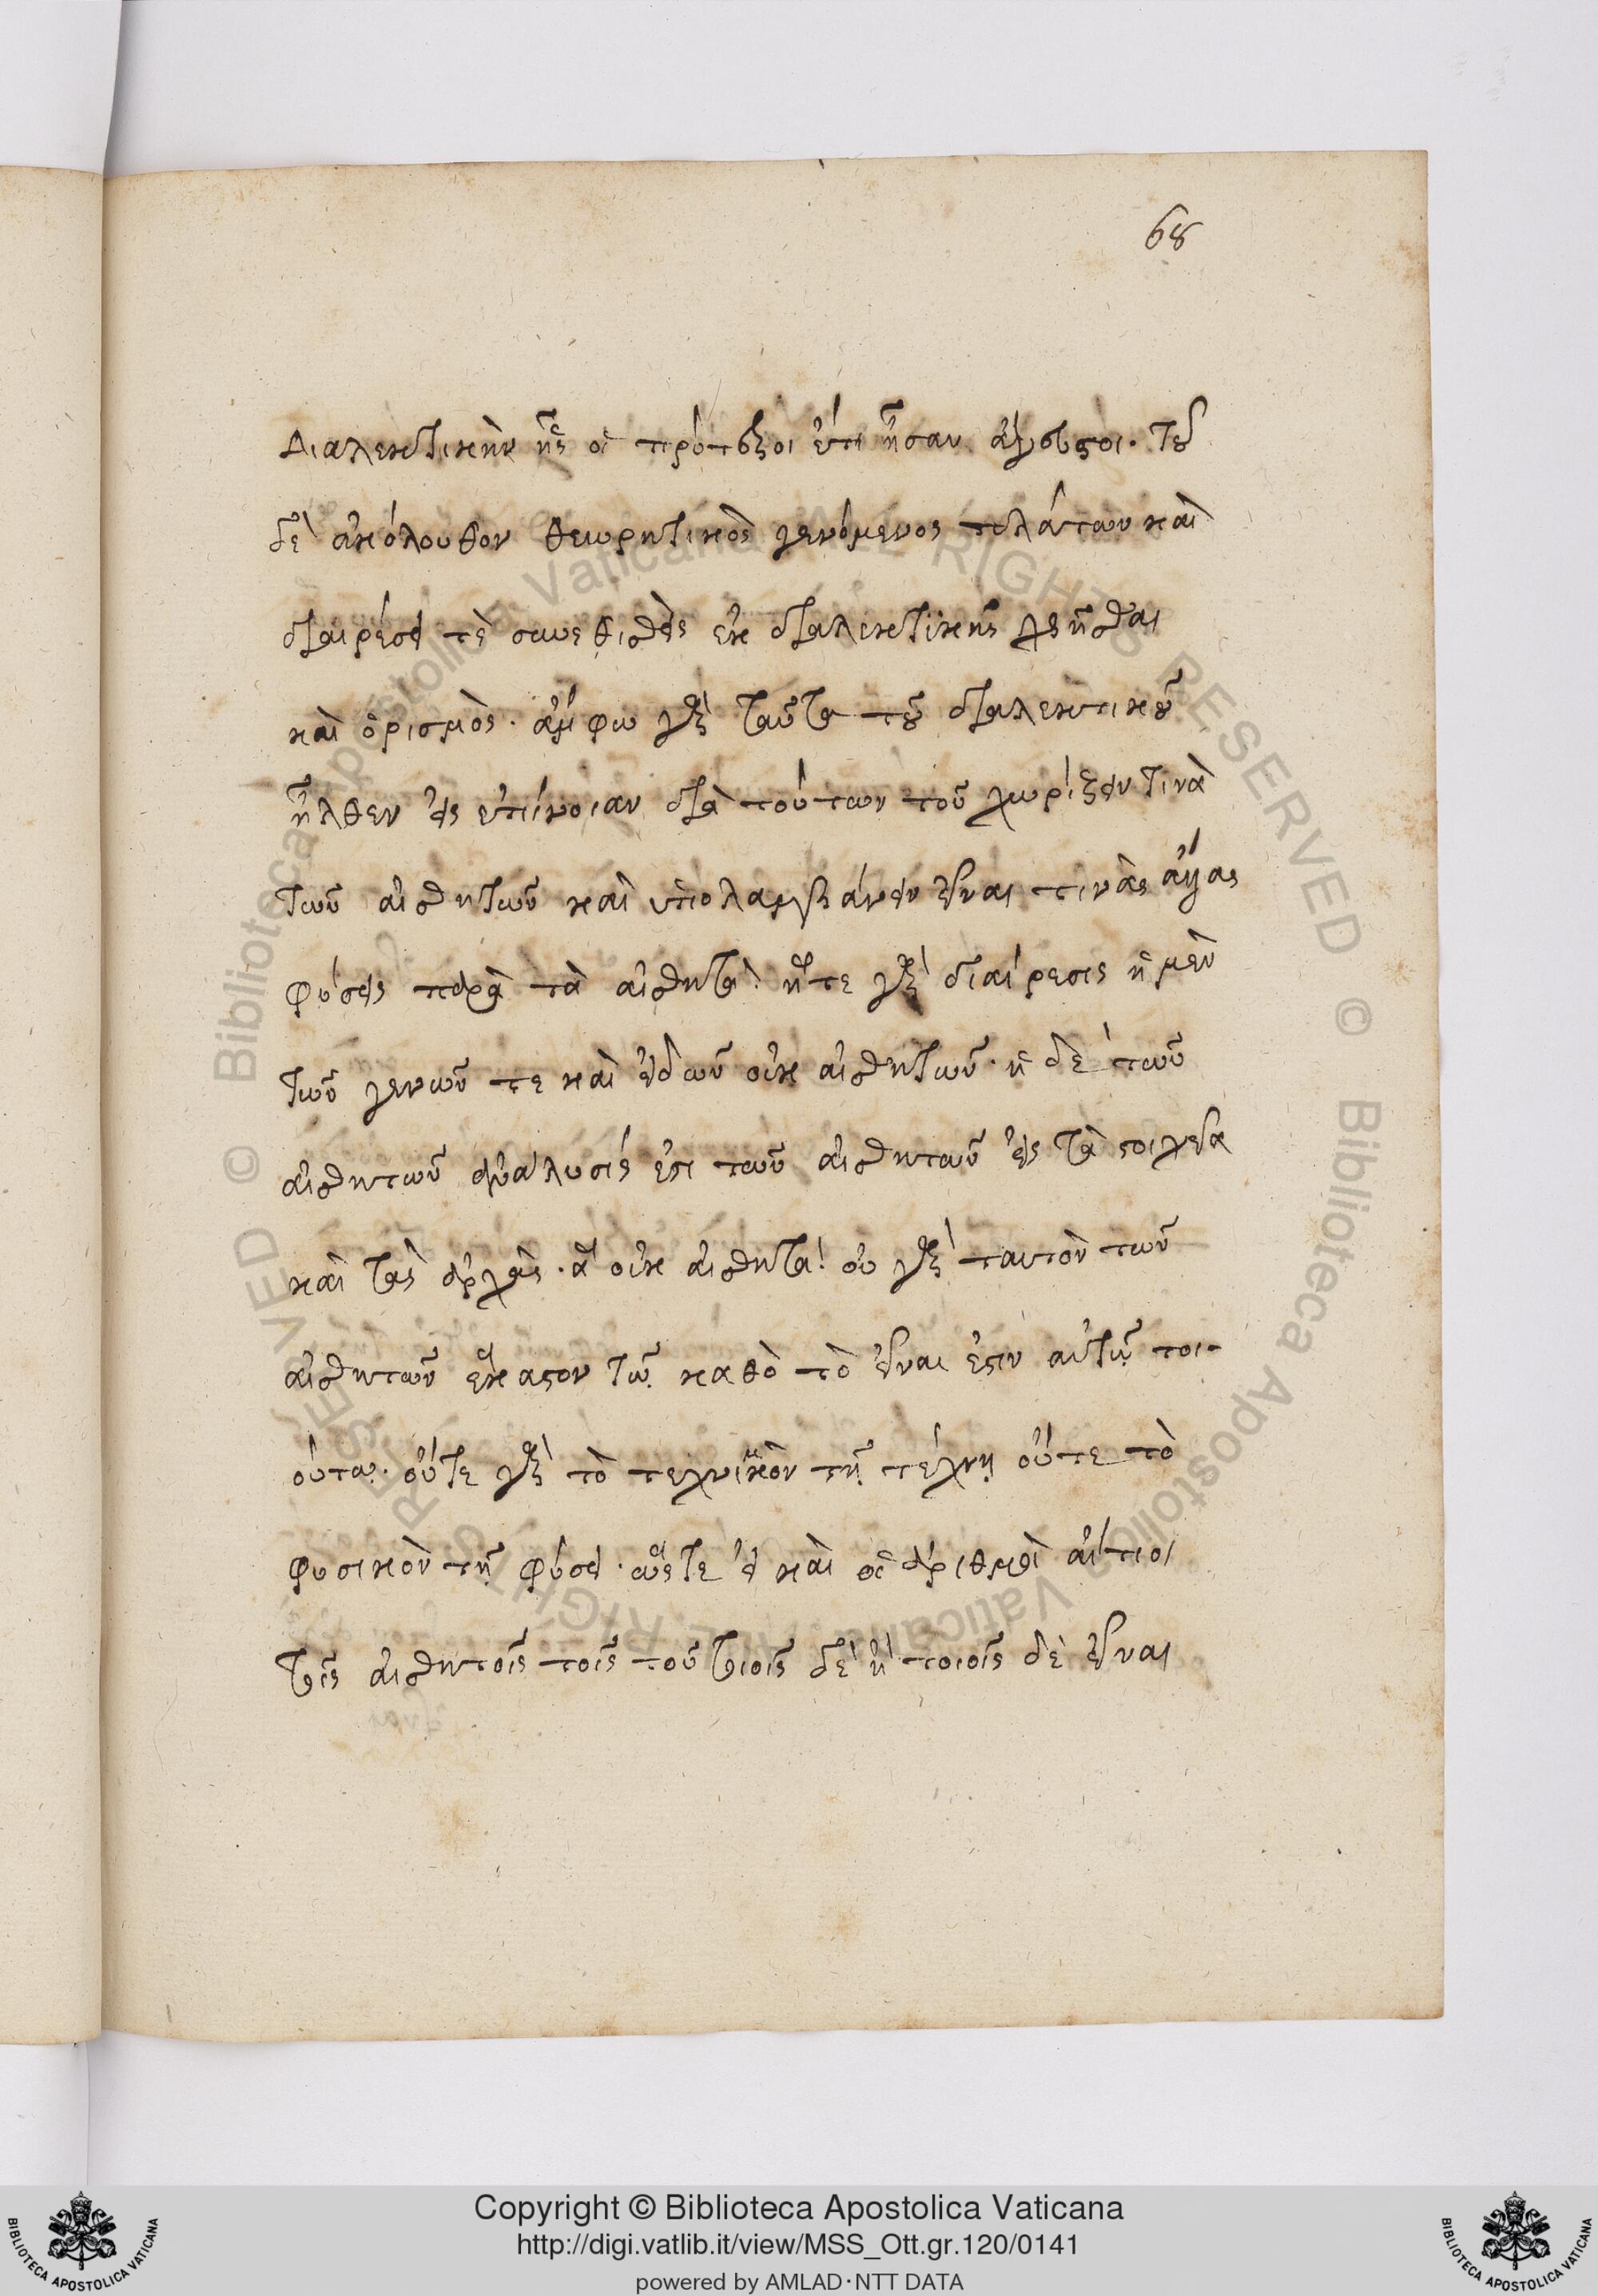 68
διαλεκτικὴν ἧς οἱ πρότεροι ἔτι ἦσαν ἄγευστοι. τοῦ
δὲ ἀκόλουθον θεωρητικὸς γενόμενος πλάτων καὶ
διαιρέσει τὲ συνεθισθεὶς ἐκ διαλεκτικῆς χρῆσθαι
καὶ ὁρισμὸς. ἄμφω γὰρ ταῦτα τοῦ διαλεκτικοῦ
ἦλθεν εἰς ἐπίνοιαν διὰ τούτων τοῦ χωρίζειν τινὰ
τῶν αἰσθητῶν καὶ ὑπολαμβάνειν εἶναι τινὰς ἄλλας
φύσεις παρὰ τὰ αἰσθητὰ. ἥτε γὰρ διαίρεσις ἡ μὲν
τῶν γενῶν τε καὶ εἰδῶν οὐκ αἰσθητῶν. ἡ δὲ τῶν
αἰσθητῶν ἀνάλυσίς ἐστι τῶν αἰσθητῶν εἰς τὰ στοιχεῖα
καὶ τὰς ἀρχὰς. ἃ οὐκ αἰσθητὰ. οὐ γὰρ ταυτὸν τῶν
αἰσθητῶν ἕκαστον τῷ καθὸ τὸ εἶναι ἐστιν αὐτῷ τοι-
ούτῳ. οὔτε γὰρ τὸ τεχνικὸν τῇ τέχνῃ οὔτε τὸ
φυσικὸν τῇ φύσει. ὥστε εἰ καὶ οἱ ἀριθμοὶ αἴτιοι
τοῖς αἰσθητοῖς τοῖς τοῦ τοιοῖς δὲ ἢ τοιοῖς δὲ εἶναι
Copyright © Biblioteca Apostolica Vaticana
http://digi.vatlib.it/view/MSS_Ott.gr.120/0141
powered by AMLAD·NTT DATA